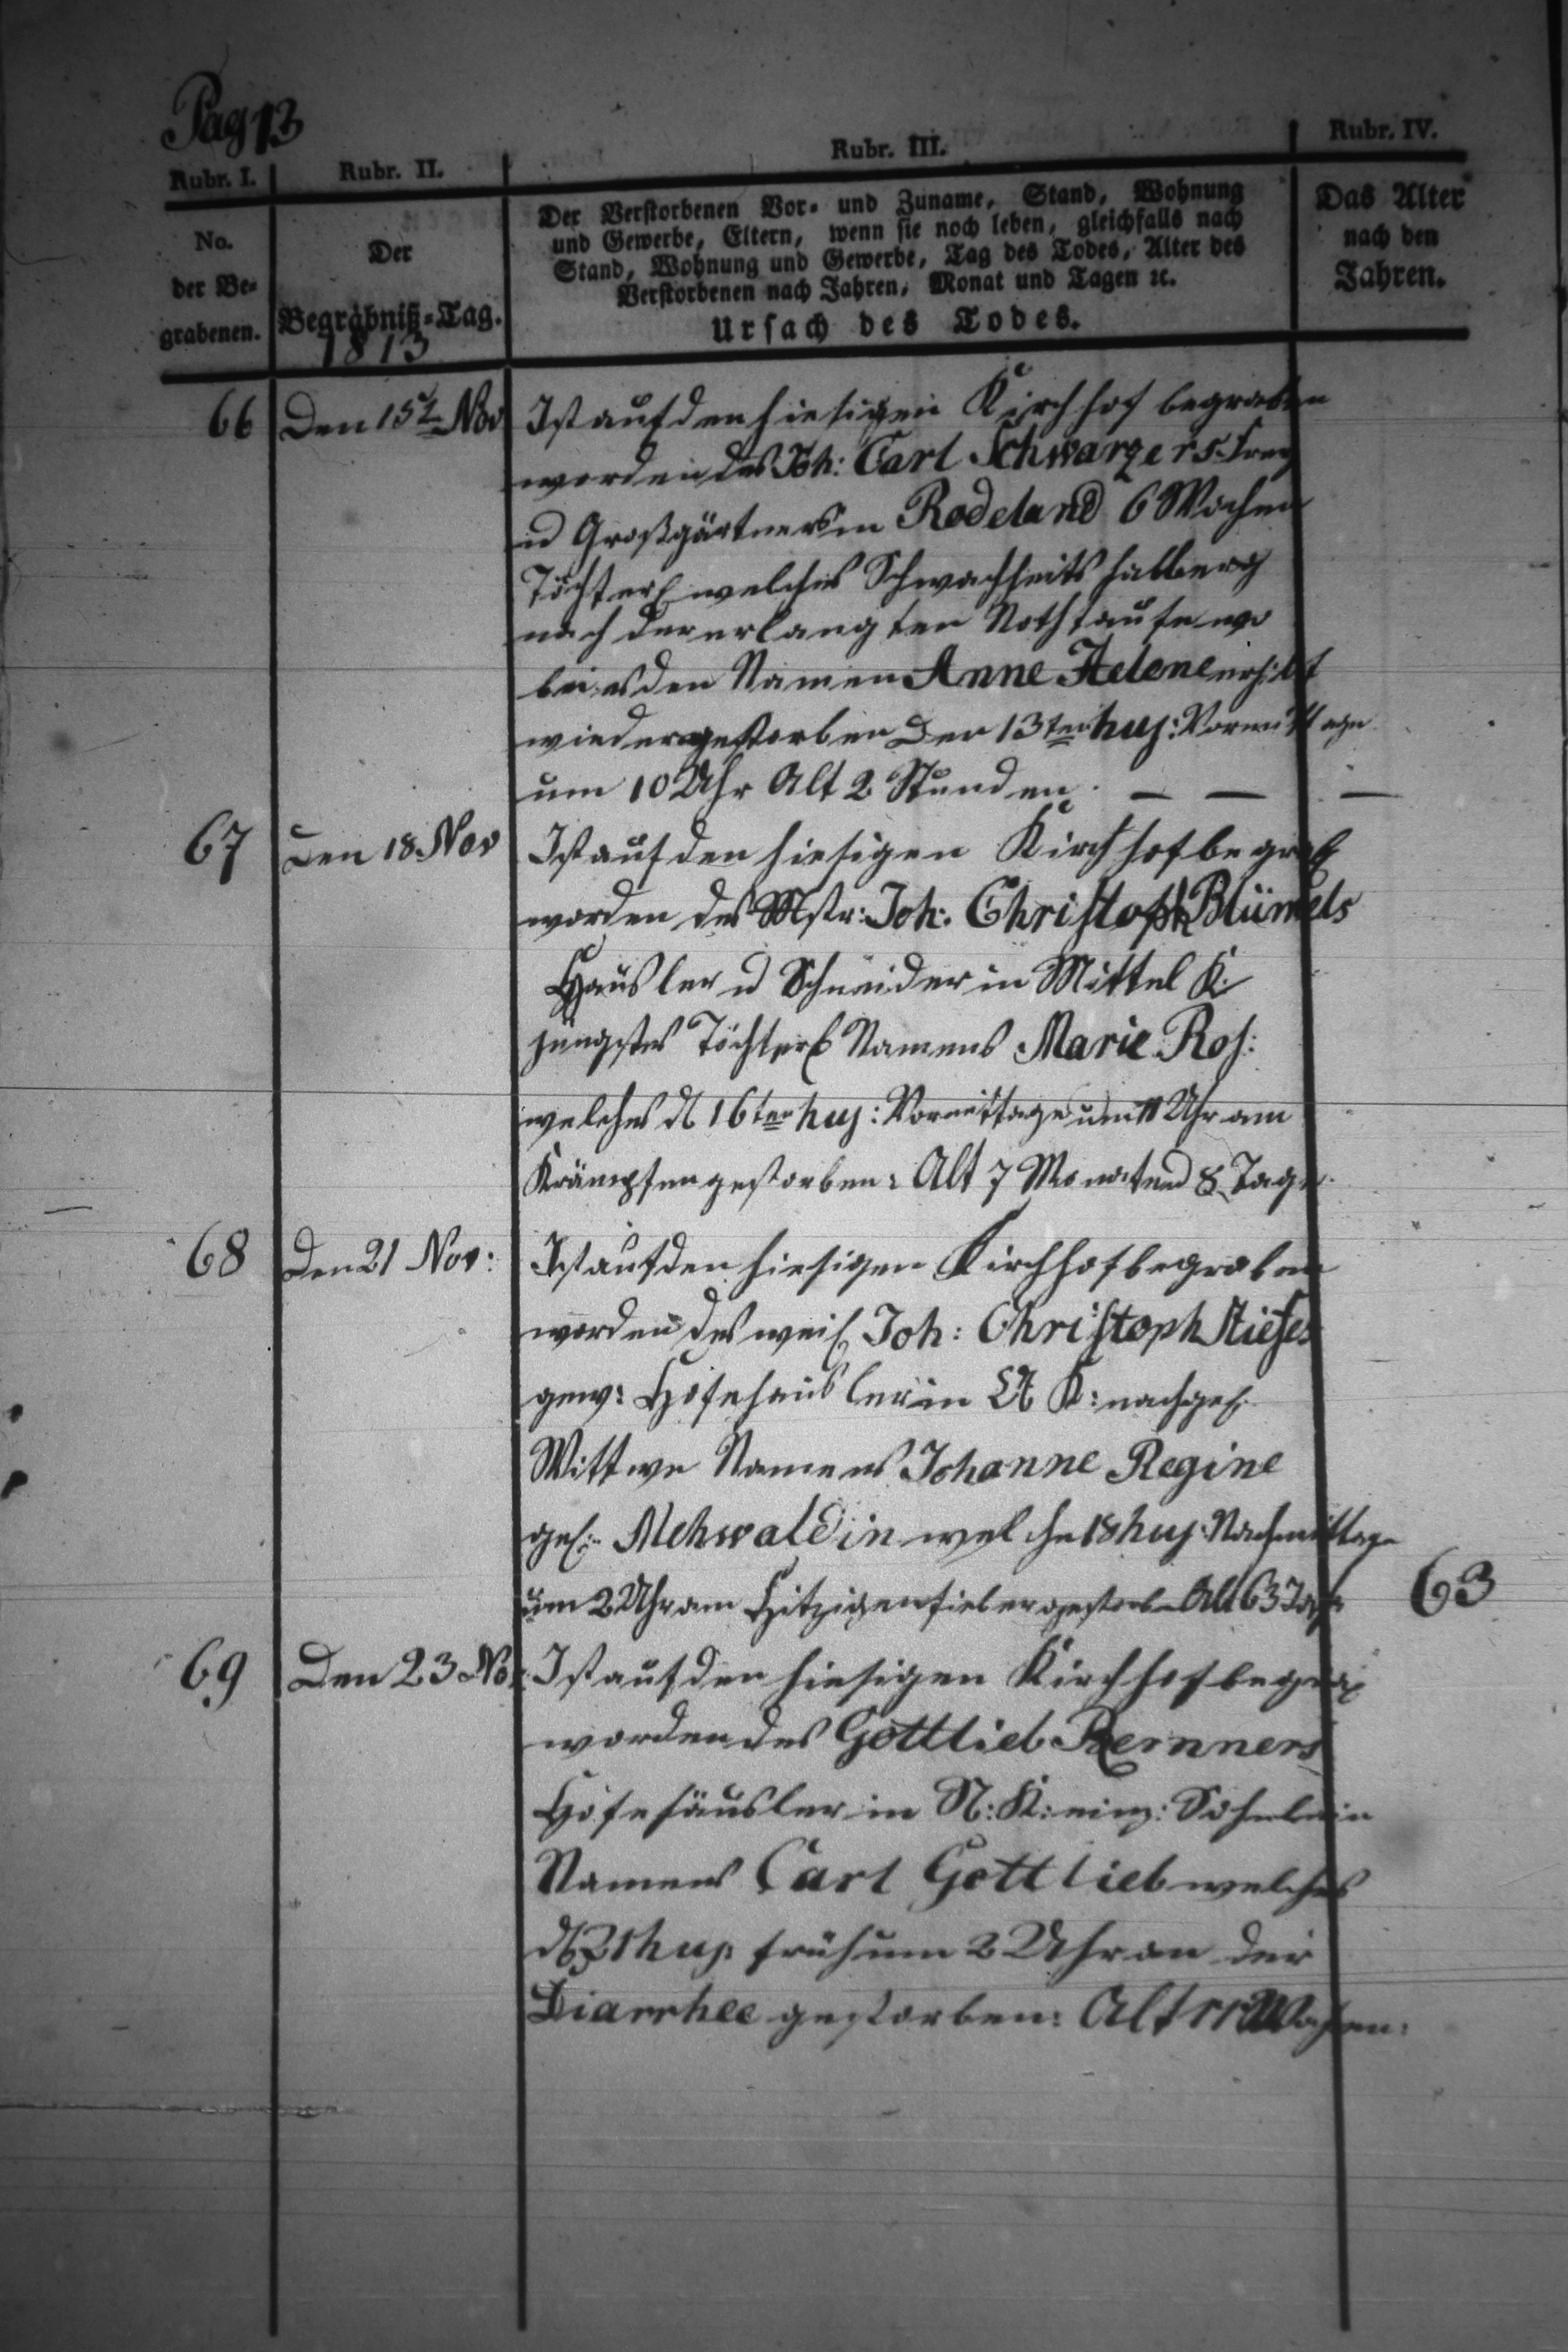 Pag 13
Rubr. I.
Rubr. II.
Rubr. III.
Rubr. IV.
No.
der Be-
grabenen.
Der
Begräbniß-Tag.
1813
Der Verstorbenen Vor- und Zuname, Stand, Wohnung
und Gewerbe, Eltern, wenn sie noch leben, gleichfalls nach
Stand, Wohnung und Gewerbe, Tag des Todes, Alter des
Verstorbenen nach Jahren, Monat und Tagen ꝛc.
Ursach des Todes.
Das Alter
nach den
Jahren.
66 Den 15t Nov Ist auf den hiesigen Kirchhof begraben
worden des Joh: Carl Schwarzers Frey
u Großgärtners in Rodeland 6 Wochen
Töchterl welches Schwachheits halber
nach der erlangten Nothtaufe wo
bei es den Namen Anne Helene erhilt
wieder gestorben Den 13ten huj: Vormittage
um 10 Uhr Alt 2 Stunden. — — —
67 Den 18 Nov Ist auf den hiesigen Kirchhof begrab
worden des Mstr: Joh: Christoph Blümels
Häusler u Schneider in Mittel K:
jüngstes Töchterl Namens Marie Ros:
welches d 16ten huj: Vormittage um 11 Uhr am
Krämpfen gestorben: Alt 7 Monat und 8 Tage.
68 Den 21 Nov: Ist auf den hiesigen Kirchhof begraben
worden des weil Joh: Christoph
gew: Hofehäusler in K: nachgel:
Wittwe Namens Johanne Regine
geb: Mehwaldin welche 18 huj: Nachmittage
um 2 Uhr am Hitzigenfieber gestorben Alt 63 Jahr 63
69 Den 23 Nov Ist auf den hiesigen Kirchhof begra
worden des Gottlieb
Hofehäusler in N: K: einz: Söhnlein
Namens Carl Gottlieb welches
d 21 huj: früh um 2 Uhr an der
Diarrhee gestorben: Alt 11 Wochen: